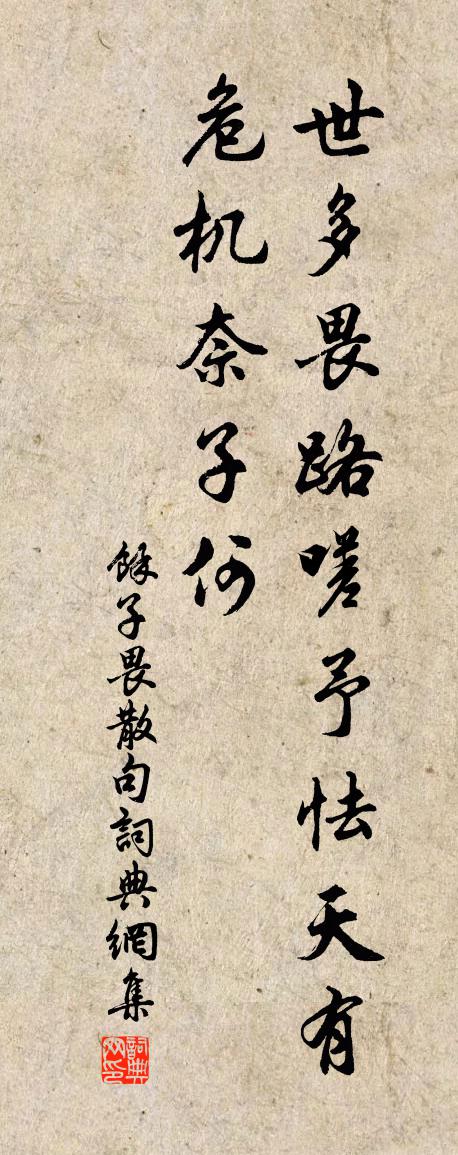 世多畏路嗟予怯天有
危机奈子何
馀子畏散句詞典網集
詞典網印